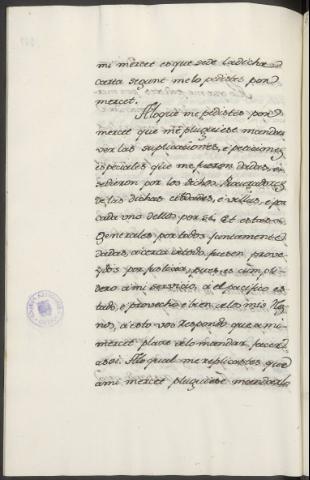 mi mercet es que sede la dicha
carta segunt me lo pedistes por
mercet.
Alo que me pedistes por
mercet que me pluguiese mandar
ver las suplicaciones, e peticiones
especiales que me fueron dadas, e se
dieron por los dichos Procuradores
de las dichas cibdades, e villas, e por
cada uno dellos por si, Et estas
Generales por todos juntamente
dadas, acerca de todo fuesen prove-
idos por justicia, pues es cumpli-
dero a mi servicio, a el pacifico es
tado, e provecho e bien de los mis Reg
nos, a esto vos Respondo que a mi
mercet place de lo mandar facer
asi. Alo qual me replicastes que
a mi mercet pluguiese mandarlo